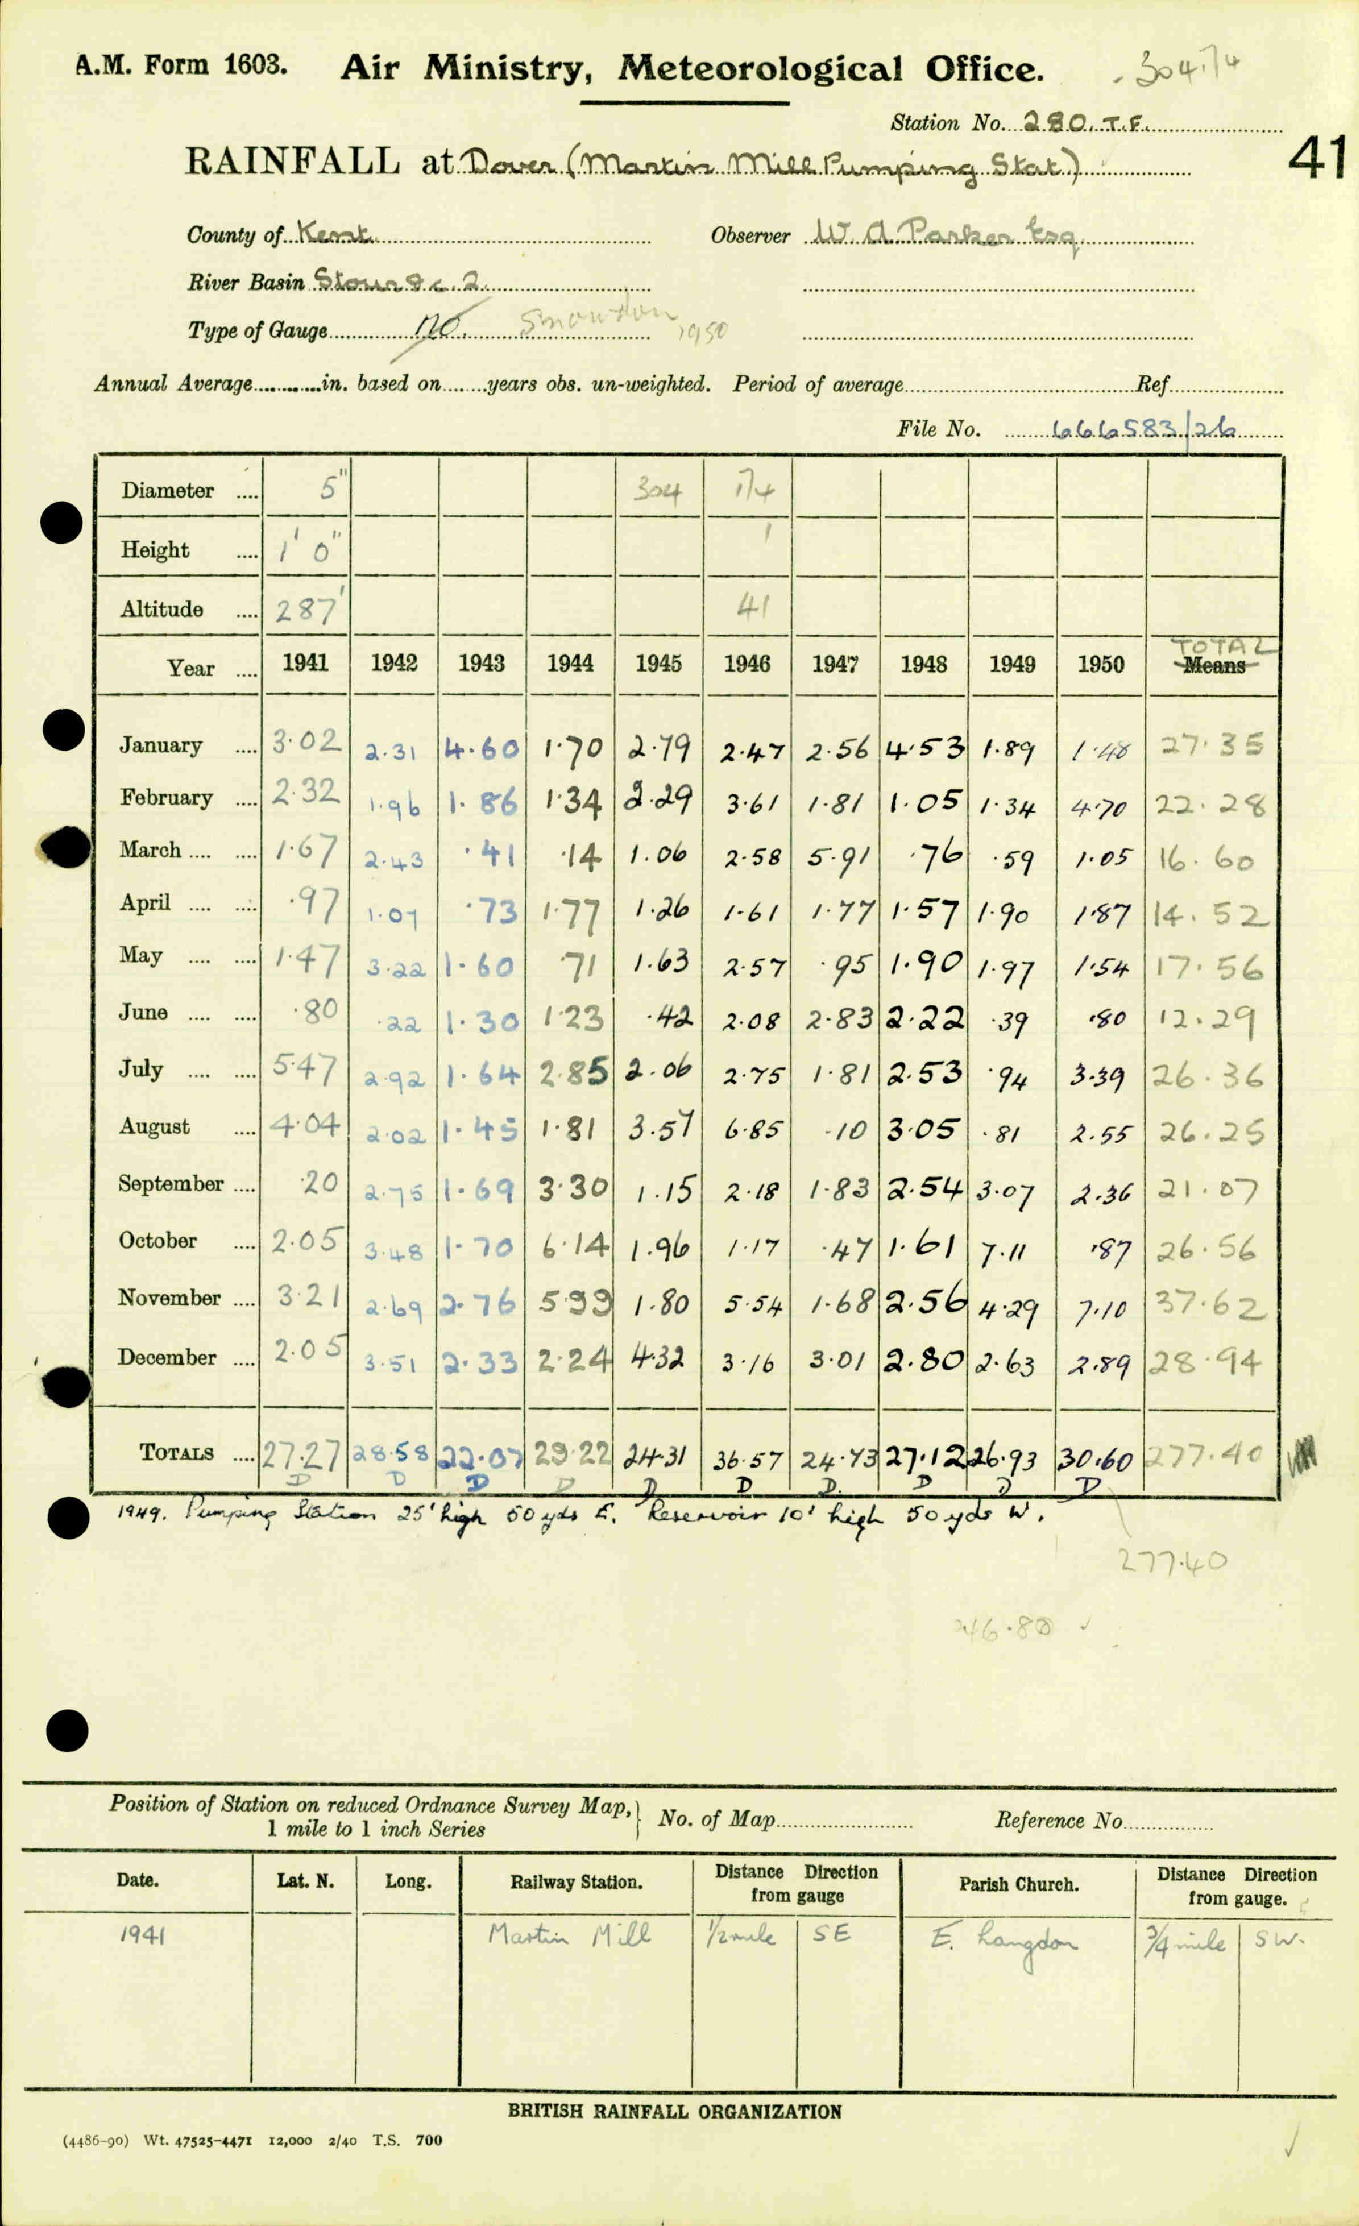 A.M. Form 1603. Air Ministry, Meteorological Office. 304.174
Station No. 280. T.F.
41
RAINFALL at Dover (Martin Mill Pumping Stat)
County of Kent Observer W. A Parker Esq.
River Basin Stour &c. 2
Type of Gauge No. Snowdon 1950
Annual Average............in. based on........years obs. un-weighted. Period of average........Ref........
File No. 666583/26
Diameter .... 5" 304 174
Height .... 1' 0" 1
Altitude .... 287' 41
TOTAL
Year .... 1941 1942 1943 1944 1945 1946 1947 1948 1949 1950 Means
January .... 3.02 2.31 4.60 1.70 2.79 2.47 2.56 4.53 1.89 1.48 27.35
February .... 2.32 1.96 1.86 1.34 2.29 3.61 1.81 1.05 1.34 4.70 22.28
March .... .... 1.67 2.43 .41 .14 1.06 2.58 5.91 .76 .59 1.05 16.60
April .... .... .97 1.07 .73 1.77 1.26 1.61 1.77 1.57 1.90 1.87 14.52
May .... .... 1.47 3.22 1.60 .71 1.63 2.57 .95 1.90 1.97 1.54 17.56
June .... .... .80 .22 1.30 1.23 .42 2.08 2.83 2.22 .39 .80 12.29
July .... .... 5.47 2.92 1.64 2.85 2.06 2.75 1.81 2.53 .94 3.39 26.36
August .... 4.04 2.02 1.45 1.81 3.57 6.85 .10 3.05 .81 2.55 26.25
September .... .20 2.75 1.69 3.30 1.15 2.18 1.83 2.54 3.07 2.36 21.07
October .... 2.05 3.48 1.70 6.14 1.96 1.17 .47 1.61 7.11 .87 26.56
November .... 3.21 2.69 2.76 5.99 1.80 5.54 1.68 2.56 4.29 7.10 37.62
December .... 2.05 3.51 2.33 2.24 4.32 3.16 3.01 2.80 2.63 2.89 28.94
TOTALS .... 27.27 28.58 22.07 29.22 24.31 36.57 24.73 27.12 26.93 30.60 277.40
D D D D D D D D D D
1949. Pumping Station 25' high 50 yds E. Reservoir 10' high 50 yds W.
277.40
46.80 ✓
Position of Station on reduced Ordnance Survey Map, } No. of Map........ Reference No........
1 mile to 1 inch Series
Date. Lat. N. Long. Railway Station. Distance from gauge Direction Parish Church. Distance from gauge. Direction
1941 Martin Mill 1/2 mile SE E. Langdon 3/4 mile SW.
BRITISH RAINFALL ORGANIZATION
(4486-90) Wt. 47525-4471 12,000 2/40 T.S. 700